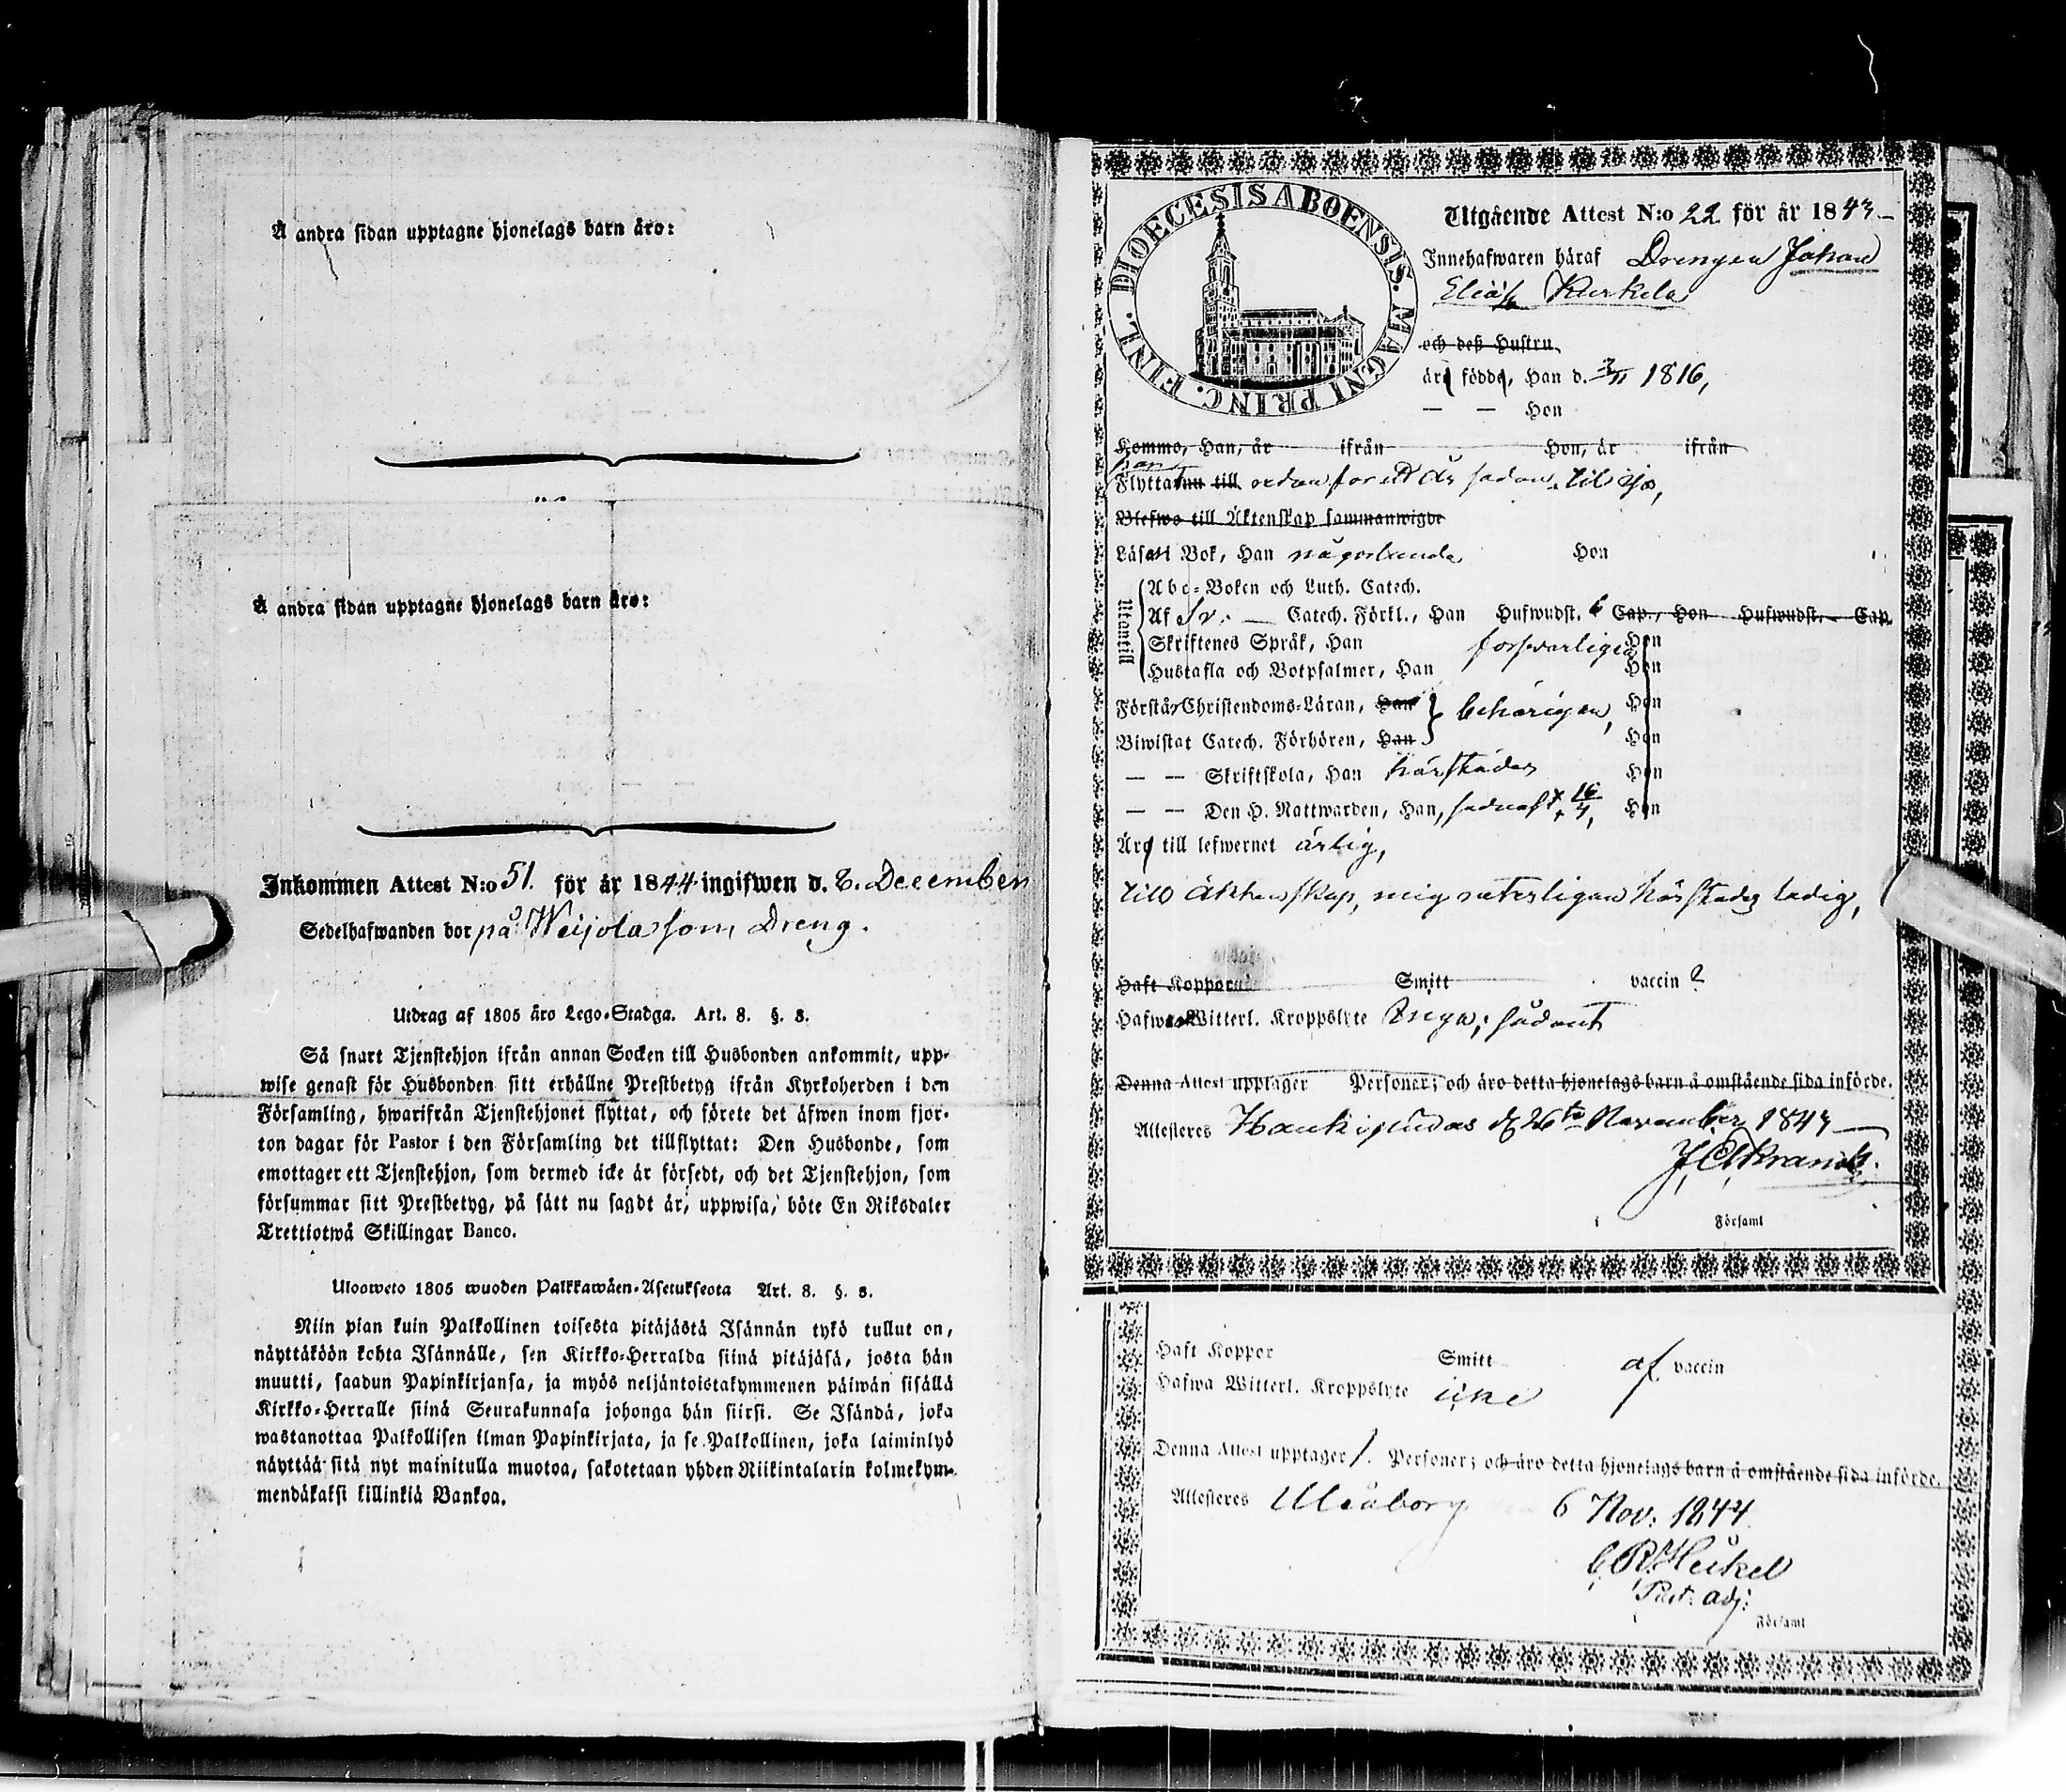 Å andra sidan upptagne hjonelags barn äro:
Å andra sidan upptagne hjonelags barn äro:
Inkommen Attest N:o 51. för år 1844 ingifwen d. 8. December
Sedelhafwanden bor på Weijola som Dreng.
Utdrag af 1805 åro Lego-Stadga. Art. 8. §. 8.
Så snart Tjenstehjon ifrån annan Socken till Husbonden ankommit, upp-
wise genast för Husbonden sitt erhållne Prestbetyg ifrån Kyrkoherden i den
Församling, hwarifrån Tjenstehjonet flyttat, och förete det äfwen inom fjor-
ton dagar för Pastor i den Församling det tillflyttat: Den Husbonde, som
emottager ett Tjenstehjon, som dermed icke är försedt, och det Tjenstehjon, som
försummar sitt Prestbetyg, på sätt nu sagdt är, uppwisa, böte En Riksdaler
Trettiotwå Skillingar Banco.
Ulosweto 1805 wuoden Palkkawäen-Asetuksesta Art. 8. §. 8.
Niin pian kuin Palkollinen toisesta pitäjästä Isännän tykö tullut on,
näyttäköön kohta Isännälle, sen Kirkko-Herralda siinä pitäjäsä, josta hän
muutti, saadun Papinkirjansa, ja myös neljäntoistakymmenen päiwän sisällä
Kirkko-Herralle siinä Seurakunnasa johonga hän siirsi. Se Isändä, joka
wastanottaa Palkollisen ilman Papinkirjata, ja se Palkollinen, joka laiminlyö
näyttää sitä nyt mainitulla muotoa, sakotetaan yhden Riikintalarin kolmekym-
mendäkaksi killinkiä Bankoa.
DIOECESIS ABOENSIS. MAGNI PRINC. FINL.
Utgående Attest N:o 22 för år 1843
Innehafwaren häraf Drengen Johan
Eliaſs Kurkela
och deß Hustru
äro födde, Han d. 3/11 1816,
— — Hon
Kommo, Han, år ifrån Hon, år ifrån
Flytta nu till
Blefwo till Äktenskap sammanwigde
Läsa i Bok, Han någorlunda Hon
Utantill
Abc-Boken och Luth. Catech.
Af Sv. Catech. Förkl., Han Hufwudst. 6 Cap., Hon Hufwudst. Cap.
Skriftenes Språk, Han försvarligen Hon
Hustafla och Botpsalmer, Han Hon
Förstår Christendoms-Läran, Han behörigen, Hon
Biwistat Catech. Förhören, Han Hon
— — Skriftskola, Han härstädes Hon
— — Den H. Nattwarden, Han, sednast d. 16/7, Hon
Äro till lefwernet ärlig,
till äktenskap, mig veterligen härstädes ledig,
Haft Koppor Smitt vaccin ?
Hafwa Witterl. Kroppslyte Inga; sådant
Denna Attest upptager Personer; och äro detta hjonelags barn å omstående sida införde.
Attesteres Haukipudas d 26te November 1843
Församl
Haft Koppor Smitt af vaccin
Hafwa Witterl. Kroppslyte icke
Denna Attest upptager 1. Personer; och äro detta hjonelags barn å omstående sida införde.
Attesteres Uleåborg 6 Nov. 1844
C R Heikel
Past. adj.
Församl